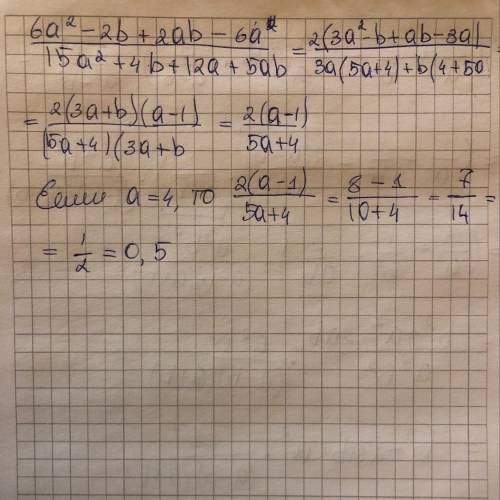 (6a² - 2b + 2ab - 6a²)/(15a² + 4b + 12a + 5ab) = 2(3a² - b + ab - 3a)/(3a(5a+4) + b(4+5a =
= 2(3a+b)(a-1)/(5a+4)(3a+b = 2(a-1)/5a+4
Если a = 4, то 2(a-1)/5a+4 = 8-1/10+4 = 7/14 =
= 1/2 = 0,5